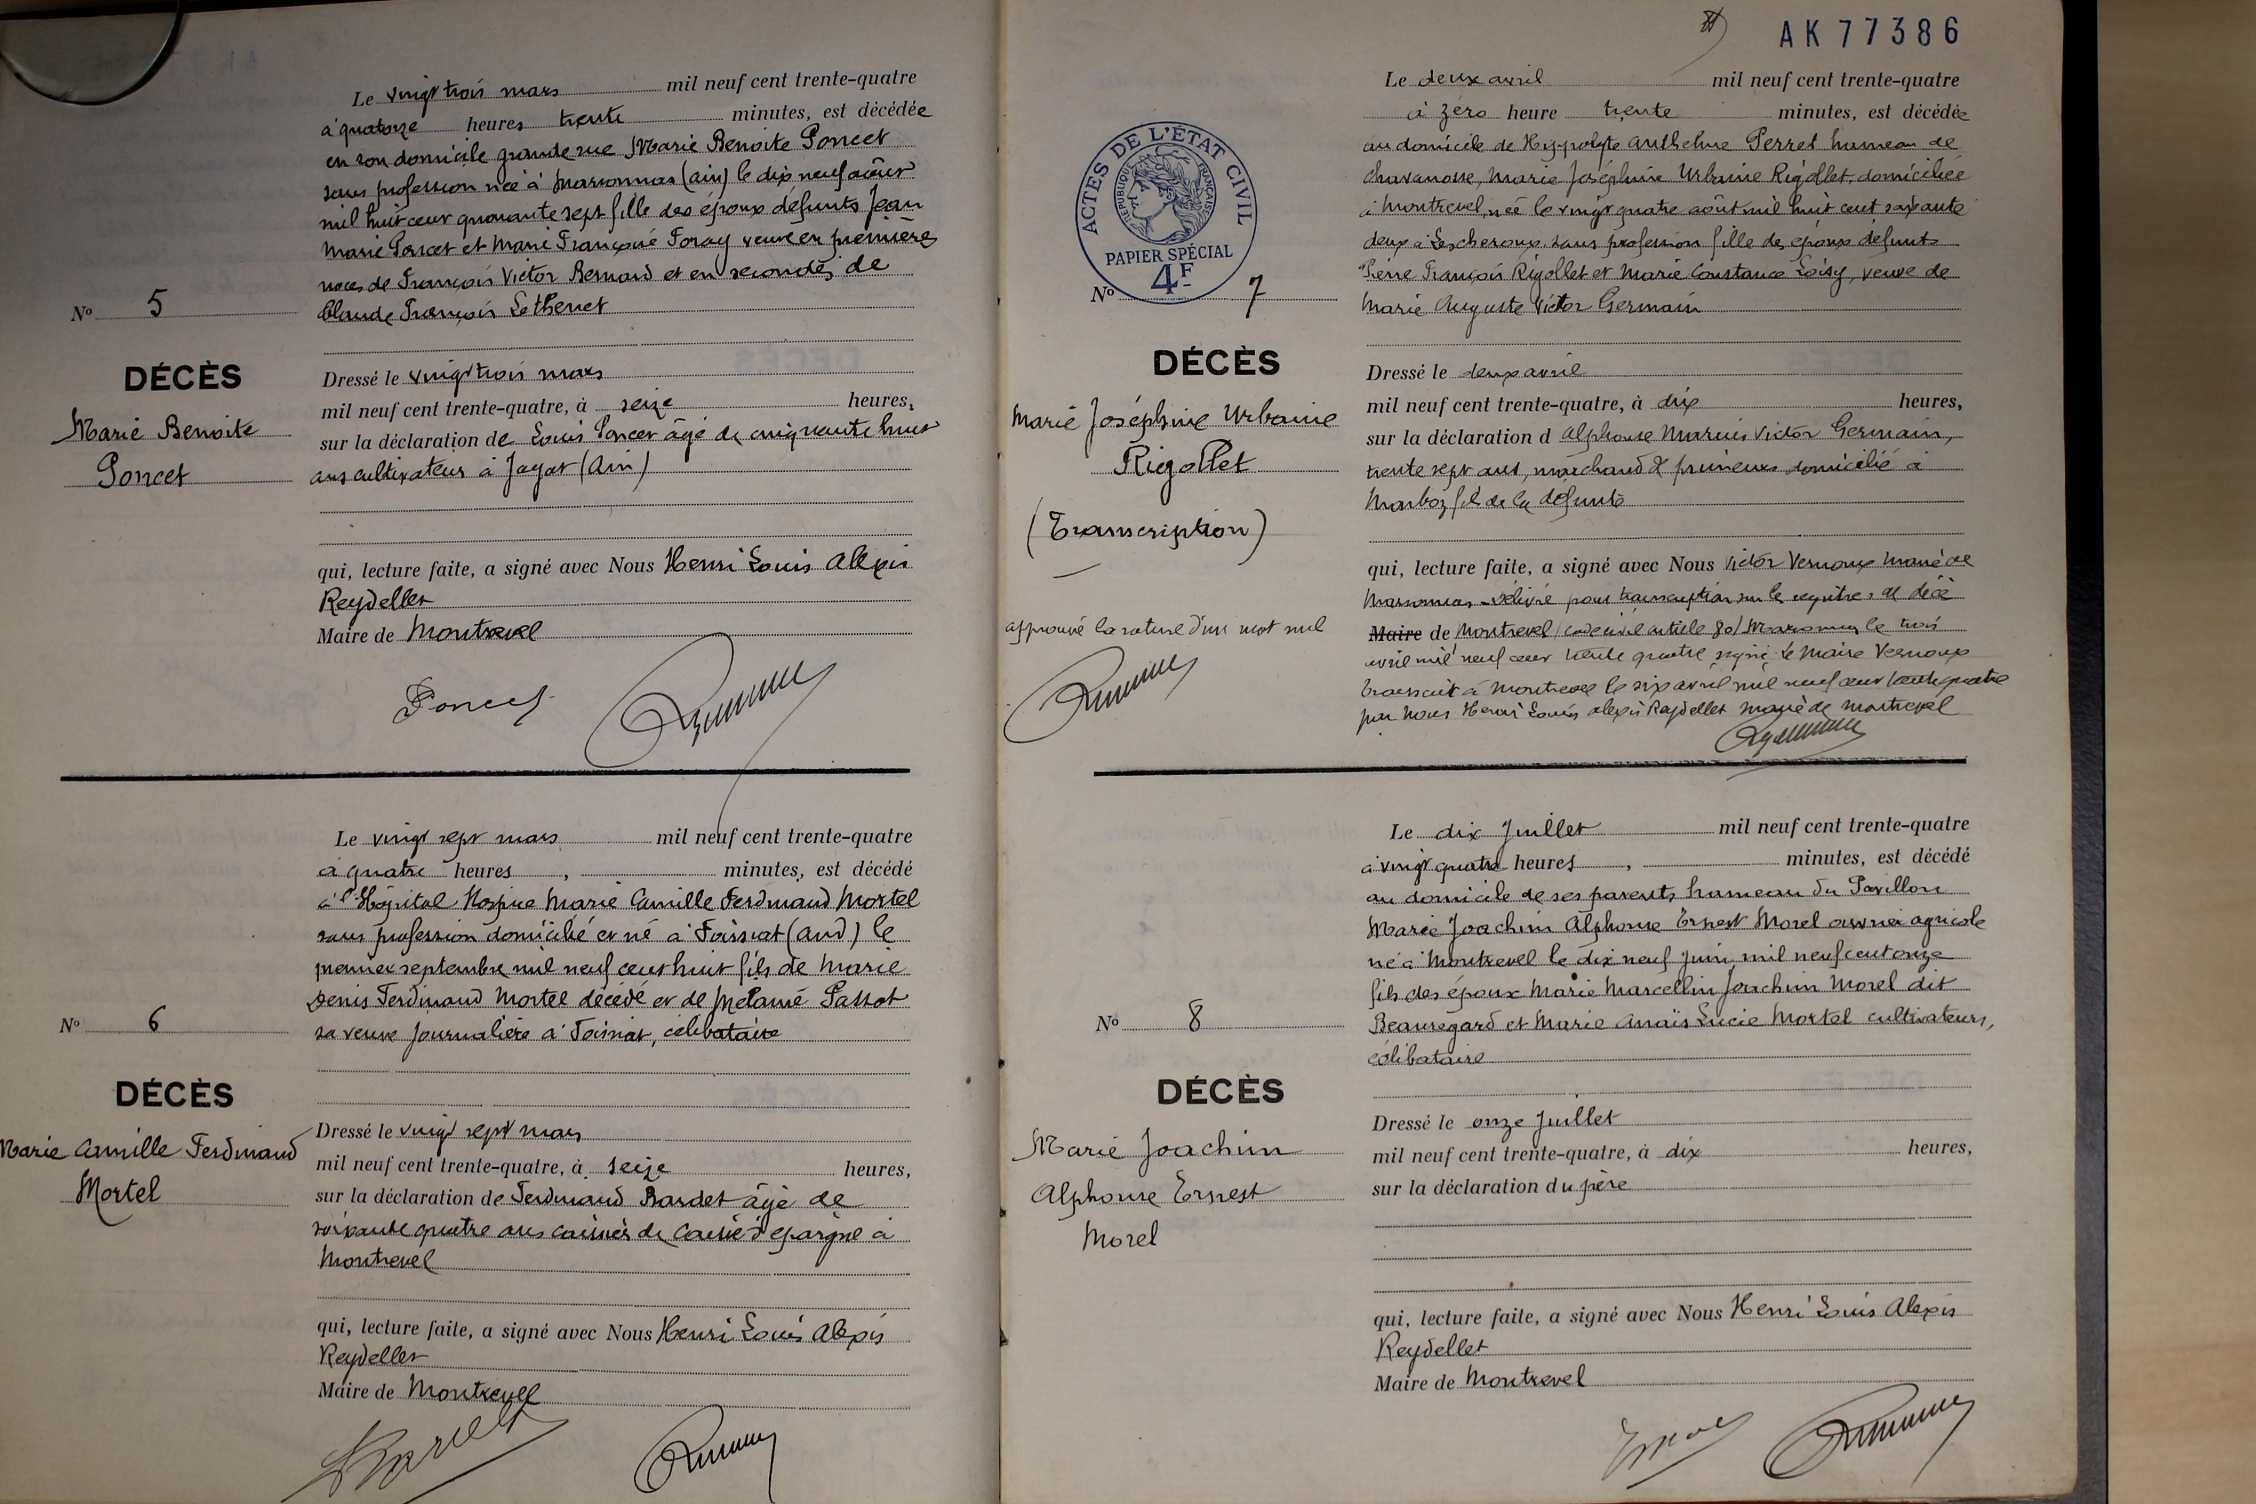 Le vingt trois mars mil neuf cent trente-quatre
à quatorze heures trente minutes, est décédée
en son domicile grande rue Marie Benoite Poncet
sans profession née à Marsonnas (ain) le dix neuf août
mil huit cent quarante sept fille des époux défunts Jean
Marie Poncet et Marie Françoise Foray veuve en premières
noces de François Victor Bernard et en secondes de
Claude François Lethenet
Nº 5
DÉCÈS
Marie Benoite
Poncet
Dressé le vingt trois mars
mil neuf cent trente-quatre, à seize heures,
sur la déclaration de Louis Poncet âgé de cinquante huit
ans cultivateur à Jayat (Ain)
qui, lecture faite, a signé avec Nous Henri Louis Alexis
Reydellet
Maire de Montrevel
Poncet
Le vingt sept mars mil neuf cent trente-quatre
à quatre heures, minutes, est décédé
à l'Hôpital Hospice Marie Camille Ferdinand Mortel
sans profession domicilié et né à Foissiat (Ain) le
premier septembre mil neuf cent huit fils de Marie
Denis Ferdinand Mortel décédé et de Mélanie Passot
sa veuve journalière à Foissiat, célibataire
Nº 6
DÉCÈS
Marie Camille Ferdinand
Mortel
Dressé le vingt sept mars
mil neuf cent trente-quatre, à seize heures,
sur la déclaration de Ferdinand Bardet âgé de
soixante quatre ans caissier de Caisse d'épargne à
Montrevel
qui, lecture faite, a signé avec Nous Henri Louis Alexis
Reydellet
Maire de Montrevel
Bardet
AK 77386
ACTES DE L'ÉTAT CIVIL
RÉPUBLIQUE FRANÇAISE
PAPIER SPÉCIAL
4F
Le deux avril mil neuf cent trente-quatre
à zéro heure trente minutes, est décédée
au domicile de Hyppolyte Anthelme Perret hameau de
Chavanosse, Marie Joséphine Urbaine Rigollet, domiciliée
à Montrevel, née le vingt quatre août mil huit cent soixante
deux à Lescheroux sans profession fille des époux défunts
Pierre François Rigollet et Marie Constance Loisy, veuve de
Marie Auguste Victor Germain
Nº 7
DÉCÈS
Marie Joséphine Urbaine
Rigollet
(Transcription)
approuvé la rature d'un mot nul
Dressé le deux avril
mil neuf cent trente-quatre, à dix heures,
sur la déclaration d Alphonse Marius Victor Germain,
trente sept ans, marchand de primeurs domicilié à
Marboz fils de la défunte
qui, lecture faite, a signé avec Nous Victor Vernoux Maire de
Marsonnas – délivré pour transcription sur le registre de décès
Maire de Montrevel (code civil article 80) Marsonnas le trois
avril mil neuf cent trente quatre signé le Maire Vernoux
Transcrit à Montrevel le six avril mil neuf cent trente quatre
par Nous Henri Louis Alexis Reydellet Maire de Montrevel
Le dix Juillet mil neuf cent trente-quatre
à vingt quatre heures, minutes, est décédé
au domicile de ses parents, hameau du Pavillon
Marie Joachim Alphonse Ernest Morel ouvrier agricole
né à Montrevel le dix neuf juin mil neuf cent onze
fils des époux Marie Marcellin Joachim Morel dit
Beauregard et Marie Anaïs Lucie Mortel cultivateurs,
célibataire
Nº 8
DÉCÈS
Marie Joachim
Alphonse Ernest
Morel
Dressé le onze Juillet
mil neuf cent trente-quatre, à dix heures,
sur la déclaration du père
qui, lecture faite, a signé avec Nous Henri Louis Alexis
Reydellet
Maire de Montrevel